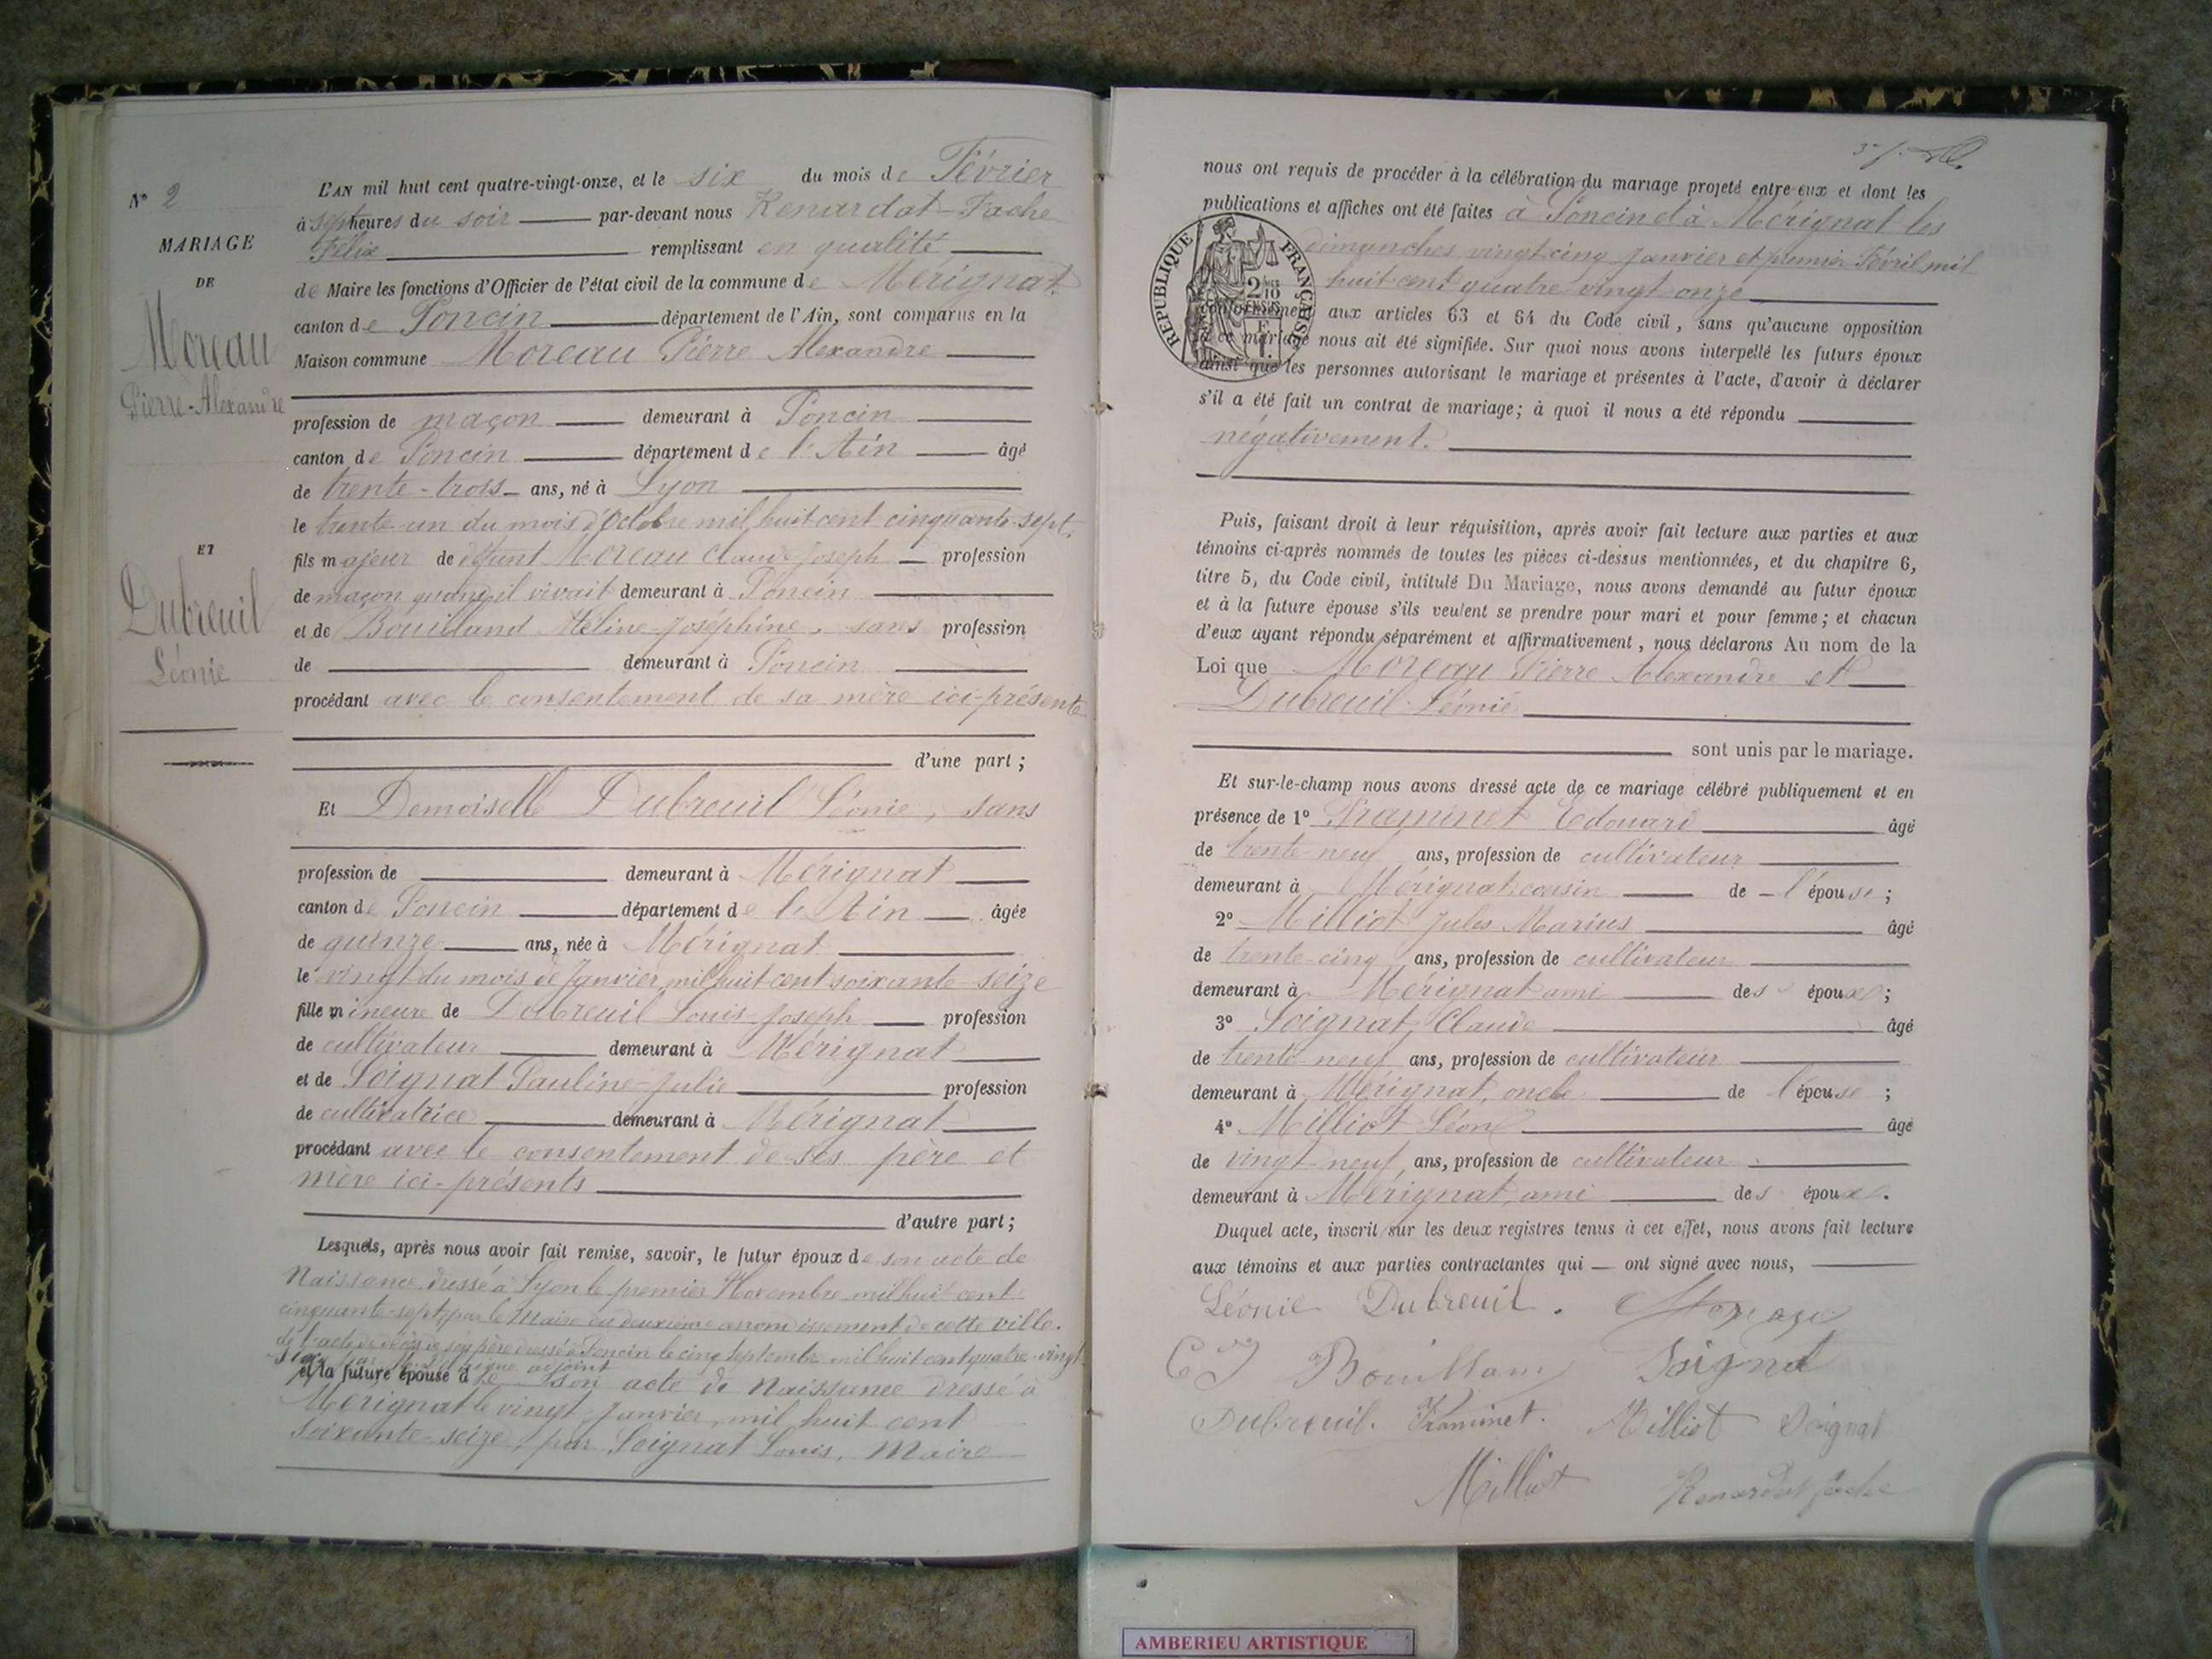 N° 2
MARIAGE
DE
Moreau
Pierre-Alexandre
ET
Dubreuil
Léonie
L'AN mil huit cent quatre-vingt-onze, et le six du mois de Février
à sept heures du soir par-devant nous Renardat-Fache
Félix remplissant en qualité
de Maire les fonctions d'Officier de l'état civil de la commune de Mérignat
canton de Poncin département de l'Ain, sont comparus en la
Maison commune Moreau Pierre Alexandre
profession de maçon demeurant à Poncin
canton de Poncin département de l'Ain âgé
de trente-trois ans, né à Lyon
le trente-un du mois d'Octobre mil huit cent cinquante-sept.
fils majeur de défunt Moreau Claude Joseph profession
de maçon quand il vivait demeurant à Poncin
et de Joséphine, sans profession
de demeurant à Poncin
procédant avec le consentement de sa mère ici-présente
d'une part ;
Et Demoiselle Dubreuil Léonie, sans
profession de demeurant à Mérignat
canton de Poncin département de l'Ain âgée
de quinze ans, née à Mérignat
le vingt du mois de Janvier mil huit cent soixante-seize
fille mineure de Dubreuil Louis-Joseph profession
de cultivateur demeurant à Mérignat
et de Soignat Pauline-Julie profession
de cultivatrice demeurant à Mérignat
procédant avec le consentement de ses père et
mère ici-présents
d'autre part ;
Lesquels, après nous avoir fait remise, savoir, le futur époux de son acte de
Naissance dressé à Lyon le premier Novembre mil huit cent
cinquante-sept par le Maire du deuxième arrondissement de cette ville.
de l'acte de décès de son père dressé à Poncin le cinq Septembre mil huit cent quatre-vingt
adjoint
et la future épouse de son acte de Naissance dressé à
Mérignat le vingt Janvier mil huit cent
soixante-seize, par Soignat Louis, Maire
nous ont requis de procéder à la célébration du mariage projeté entre eux et dont les
publications et affiches ont été faites à Poncin et à Mérignat les
dimanches vingt-cinq Janvier et premier Févril mil
huit cent quatre vingt onze
conformément aux articles 63 et 64 du Code civil, sans qu'aucune opposition
à ce mariage nous ait été signifiée. Sur quoi nous avons interpellé les futurs époux
ainsi que les personnes autorisant le mariage et présentes à l'acte, d'avoir à déclarer
s'il a été fait un contrat de mariage; à quoi il nous a été répondu
négativement.
RÉPUBLIQUE FRANÇAISE
Puis, faisant droit à leur réquisition, après avoir fait lecture aux parties et aux
témoins ci-après nommés de toutes les pièces ci-dessus mentionnées, et du chapitre 6,
titre 5, du Code civil, intitulé Du Mariage, nous avons demandé au futur époux
et à la future épouse s'ils veulent se prendre pour mari et pour femme; et chacun
d'eux ayant répondu séparément et affirmativement, nous déclarons Au nom de la
Loi que Moreau Pierre Alexandre et
Dubreuil Léonie
sont unis par le mariage.
Et sur-le-champ nous avons dressé acte de ce mariage célébré publiquement et en
présence de 1° Edouard âgé
de trente-neuf ans, profession de cultivateur
demeurant à Mérignat, cousin de l'épouse ;
2° Milliot Jules Marius âgé
de trente-cinq ans, profession de cultivateur
demeurant à Mérignat ami des époux ;
3° Soignat Claude âgé
de trente-neuf ans, profession de cultivateur
demeurant à Mérignat, oncle de l'épouse ;
4° Milliot Léon âgé
de vingt-neuf ans, profession de cultivateur
demeurant à Mérignat, ami des époux.
Duquel acte, inscrit sur les deux registres tenus à cet effet, nous avons fait lecture
aux témoins et aux parties contractantes qui ont signé avec nous,
Léonie Dubreuil. Moreau
Soignat
Dubreuil. Milliot Soignat
Milliot Renardat fache
AMBERIEU ARTISTIQUE